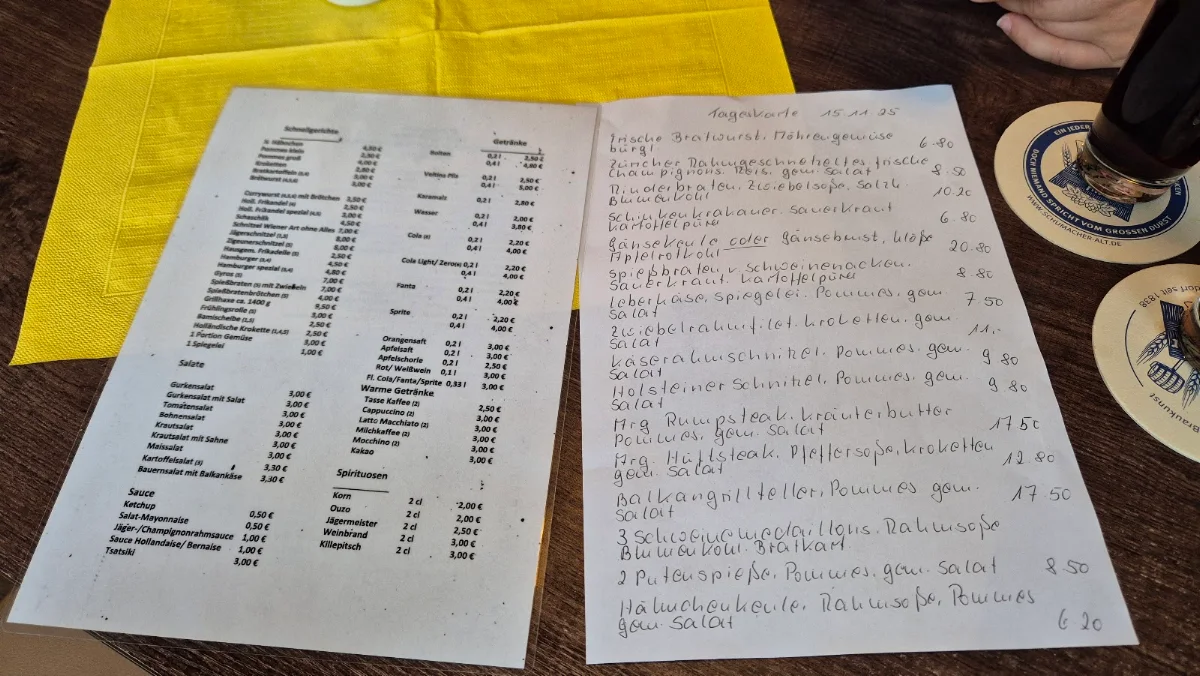 Schnellgerichte
½ Hähnchen 4,50 €
Pommes klein 2,50 €
Pommes groß
Kroketten
Bratkartoffeln 3,00 €
Bratwurst 3,00 €
Currywurst mit Brötchen 3,50 €
Holl. Frikandel
Holl. Frikandel spezial
Schaschlik
Schnitzel Wiener Art ohne Alles 7,00 €
Jägerschnitzel 8,00 €
Zigeunerschnitzel 8,00 €
Hausgem. Frikadelle
Hamburger
Hamburger spezial
Gyros
Spießbraten mit Zwiebeln 7,00 €
Spießbratenbrötchen 4,00 €
Grillhaxe ca. 1400 g
Frühlingsrolle 3,00 €
Bamischeibe
Holländische Krokette 2,50 €
1 Portion Gemüse 3,00 €
1 Spiegelei 1,00 €
Salate
Gurkensalat 3,00 €
Gurkensalat mit Salat 3,00 €
Tomatensalat 3,00 €
Bohnensalat 3,00 €
Krautsalat 3,00 €
Krautsalat mit Sahne 3,00 €
Maissalat 3,00 €
Kartoffelsalat (3) 3,30 €
Bauernsalat mit Balkankäse 3,30 €
Sauce
Ketchup 0,50 €
Salat-Mayonnaise 0,50 €
Jäger-/Champignonrahmsauce 1,00 €
Sauce Hollandaise/ Bernaise 1,00 €
Tsatsiki 3,00 €
Getränke
0,2 l 2,50 €
0,4 l
Veltins Pils 0,2 l 2,50 €
0,4 l 5,00 €
Karamalz 0,2 l 2,80 €
Wasser 0,2 l 2,00 €
0,4 l 3,80 €
Cola 0,2 l 2,20 €
0,4 l 4,00 €
Cola Light/ Zero 0,2 l 2,20 €
0,4 l 4,00 €
Fanta 0,2 l 2,20 €
0,4 l 4,00 €
Sprite 0,2 l 2,20 €
0,4 l 4,00 €
Orangensaft 0,2 l 3,00 €
Apfelsaft 0,2 l 3,00 €
Apfelschorle 0,2 l 2,50 €
Rot/ Weißwein 0,1 l 3,00 €
Fl. Cola/Fanta/Sprite 0,33 l 3,00 €
Warme Getränke
Tasse Kaffee (2) 2,50 €
Cappuccino (2) 3,00 €
Latto Macchiato (2) 3,00 €
Milchkaffee (2) 3,00 €
Mocchino (2) 3,00 €
Kakao 3,00 €
Spirituosen
Korn 2 cl 2,00 €
Ouzo 2 cl 2,00 €
Jägermeister 2 cl 2,50 €
Weinbrand 2 cl 3,00 €
Killepitsch 2 cl 3,00 €
Tageskarte 15.11.25
frische Bratwurst. Möhrengemüse
bürgl 6.80
Züricher Rahmgeschnetzeltes, frische
Champignons. Reis. gem. Salat 8.50
Rinderbraten. Zwiebelsoße, Salzk.
Blumenkohl 10.20
Schinkenkrakauer. Sauerkraut
Kartoffelpüre 6.80
Gänsekeule oder Gänsebrust, Klöße
Apfelrotkohl 20.80
Spießbraten v. Schweinenacken.
Sauerkraut. Kartoffelpüre 8.80
Leberkäse, Spiegelei. Pommes, gem.
Salat 7.50
Zwiebelrahmfilet. Kroketten, gem.
Salat 11,-
Käserahmschnitzel. Pommes. gem.
Salat 9 80
Holsteiner Schnitzel, Pommes. gem.
Salat 9 80
Arg Rumpsteak. Kräuterbutter
Pommes, gem. Salat 17 50
Arg. Hüftsteak. Pfeffersoße, Kroketten
gem. Salat 12.80
Balkangrillteller, Pommes gem.
Salat 17.50
3 Schweinemedaillons. Rahmsoße
Blumenkohl. Bratkart
2 Putenspieße, Pommes, gem. Salat 8 50
Hähnchenkeule, Rahmsoße, Pommes
gem. Salat 6 20
EIN JEDER
DOCH NIEMAND SPRICHT VOM GROSSEN DURST
WWW.SCHUMACHER-ALT.DE
dorf seit 1838
Braukunst